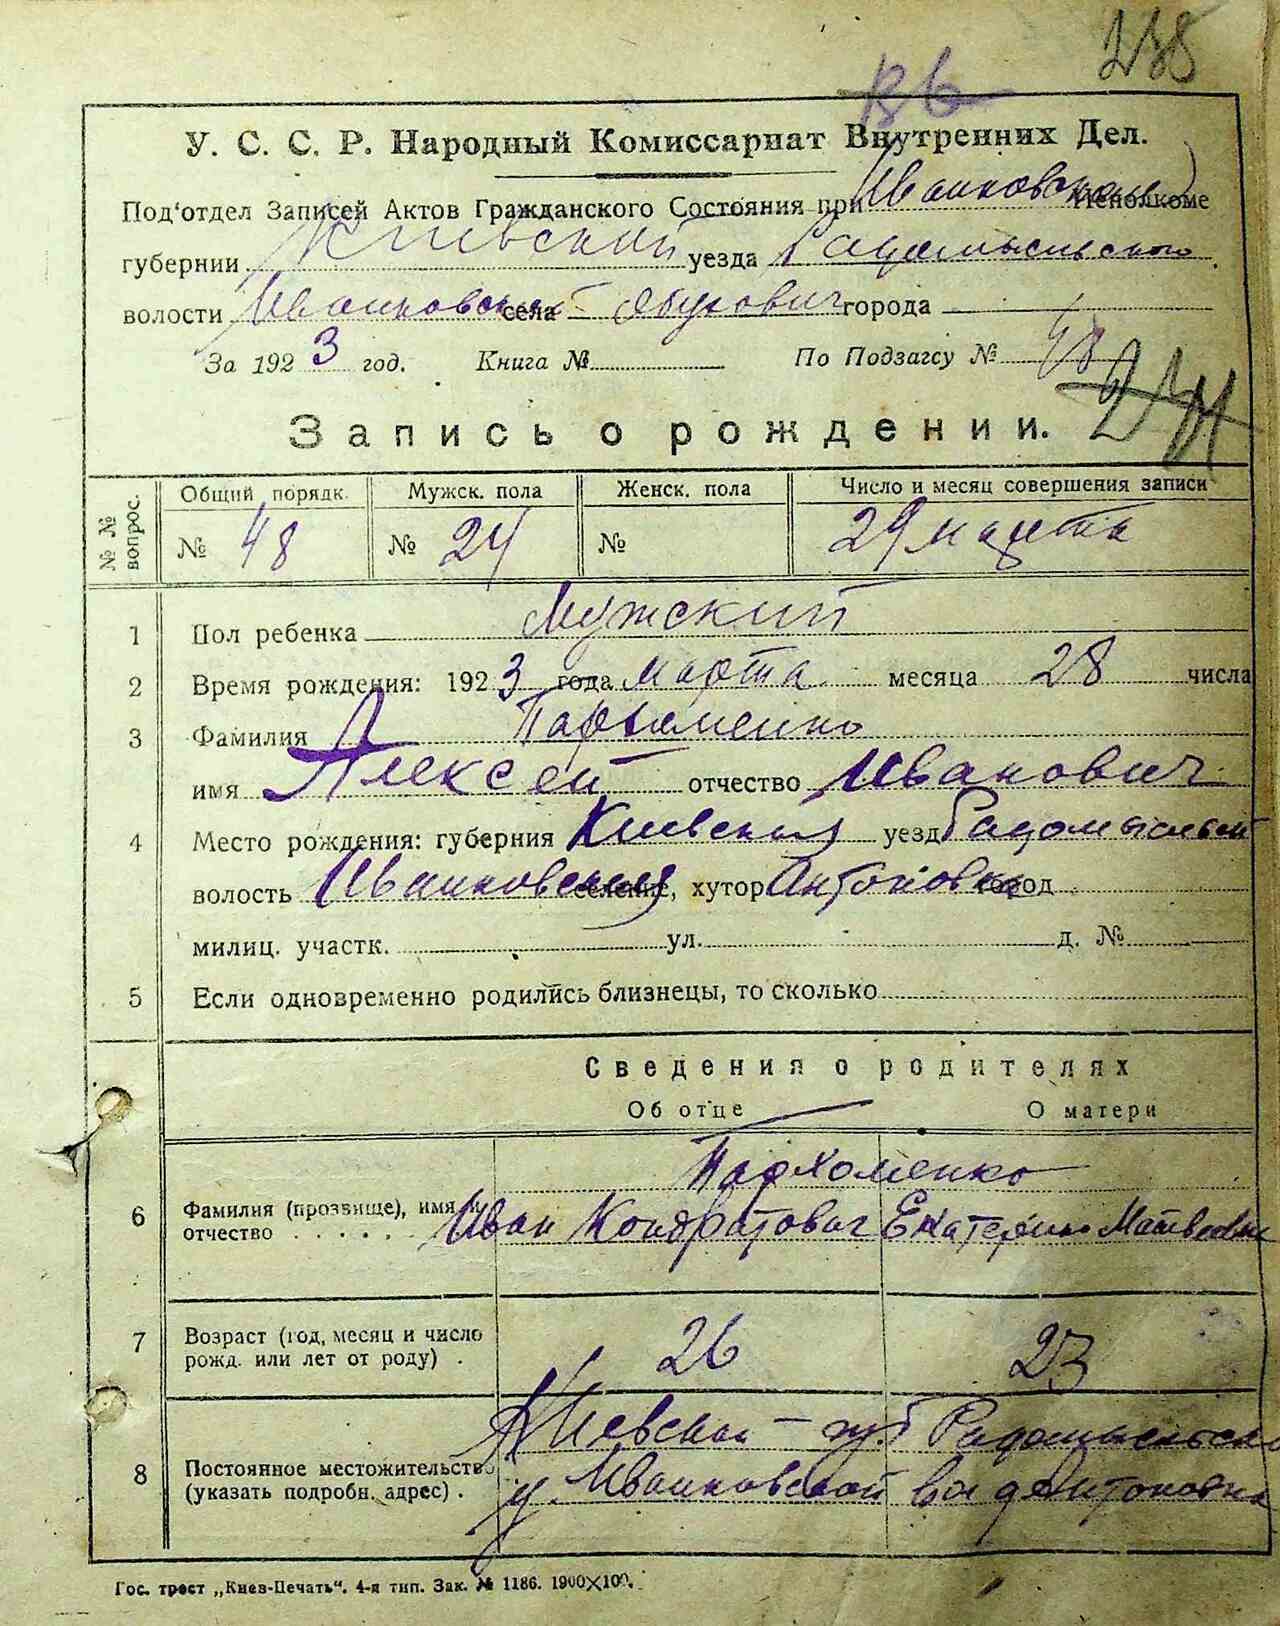 238
У. С. С. Р. Народный Комиссариат Внутренних Дел.
Под'отдел Записей Актов Гражданского Состояния при Иванковском Исполкоме
губернии Киевской уезда Радомысльского
волости Иванковской села Обухович города
За 1923 год. Книга № По Подзагсу № 48
Запись о рождении.
№ № вопрос. Общий порядк. Мужск. пола Женск. пола Число и месяц совершения записи
№ 48 № 24 № 29 марта
1 Пол ребенка Мужский
2 Время рождения: 1923 года марта месяца 28 числа
3 Фамилия Пархоменко
имя Алексей отчество Иванович
4 Место рождения: губерния Киевская уезд Радомысльский
волость Иванковская селение, хутор Антоновка город
милиц. участк. ул. д. №
5 Если одновременно родились близнецы, то сколько
Сведения о родителях
Об отце О матери
Пархоменко
6 Фамилия (прозвище), имя и отчество Иван Кондратович Екатерина Матвеевна
7 Возраст (год, месяц и число рожд. или лет от роду) . 26 23
Киевской губ Радомысльско
8 Постоянное местожительство (указать подробн. адрес) . у. Иванковской вол д Антоновка
Гос. трест „Киев-Печать“. 4-я тип. Зак. № 1186. 1900×100.